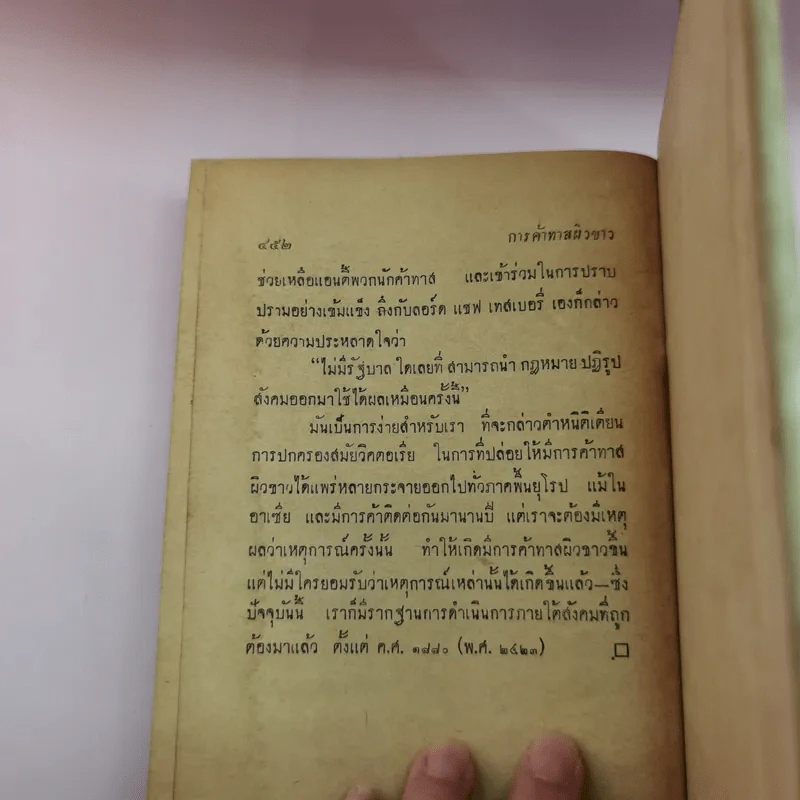 ๔๕๒ การค้าทาสผิวขาว
ช่วยเหลือแอนตี้พวกนักค้าทาส และเข้าร่วมในการปราบ
ปรามอย่างเข้มแข็ง ถึงกับลอร์ด แชฟ เทสเบอรี่ เองก็กล่าว
ด้วยความประหลาดใจว่า
“ไม่มีรัฐบาล ใดเลยที่ สามารถนำ กฎหมาย ปฏิรูป
สังคมออกมาใช้ได้ผลเหมือนครั้งนี้”
มันเป็นการง่ายสำหรับเรา ที่จะกล่าวตำหนิติเตียน
การปกครองสมัยวิคตอเรีย ในการที่ปล่อยให้มีการค้าทาส
ผิวขาวได้แพร่หลายกระจายออกไปทั่วภาคพื้นยุโรป แม้ใน
อาเซีย และมีการค้าติดต่อกันมานานปี แต่เราจะต้องมีเหตุ
ผลว่าเหตุการณ์ครั้งนั้น ทำให้เกิดมีการค้าทาสผิวขาวขึ้น
แต่ไม่มีใครยอมรับว่าเหตุการณ์เหล่านั้นได้เกิดขึ้นแล้ว—ซึ่ง
ปัจจุบันนี้ เราก็มีรากฐานการดำเนินการภายใต้สังคมที่ถูก
ต้องมาแล้ว ตั้งแต่ ค.ศ. ๑๘๘๐ (พ.ศ. ๒๔๒๓) □